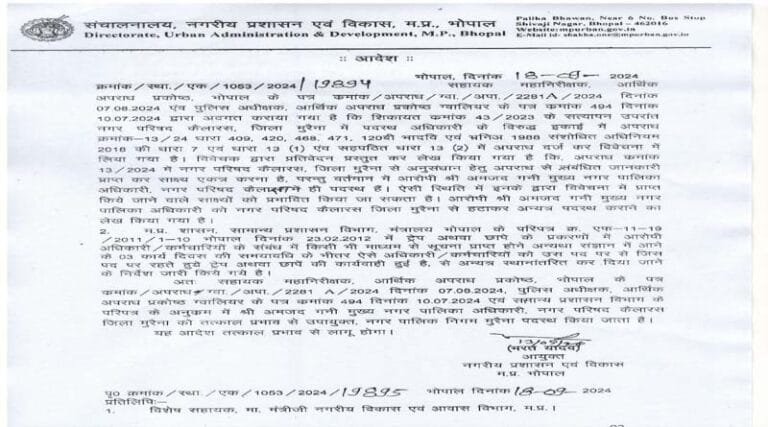 संचालनालय, नगरीय प्रशासन एवं विकास, म.प्र., भोपाल
Directorate, Urban Administration & Development, M.P., Bhopal
Palika Bhawan, Near 6 No. Bus Stop
Shivaji Nagar, Bhopal - 462016
Website:mpurban.gov.in
E-Mail id- shakha.one@mpurban.gov.in
:: आदेश ::
भोपाल, दिनांक 18-09-2024
क्रमांक/स्था./एक/1053/2024/19894 सहायक महानिरीक्षक, आर्थिक
अपराध प्रकोष्ठ, भोपाल के पत्र क्रमांक/अपराध/ग्वा./अपा./2281A/2024 दिनांक
07.08.2024 एवं पुलिस अधीक्षक, आर्थिक अपराध प्रकोष्ठ ग्वालियर के पत्र कमांक 494 दिनांक
10.07.2024 द्वारा अवगत कराया गया है कि शिकायत कमांक 43/2023 के सत्यापन उपरांत
नगर परिषद कैलारस, जिला मुरैना में पदस्थ अधिकारी के विरूद्ध इकाई में अपराध
क्रमांक-13/24 धारा 409, 420, 468, 471, 120बी भादवि एवं भ्रनिअ 1988 संशोधित अधिनियम
2018 की धारा 7 एवं धारा 13 (1) एंव सहपठित धारा 13 (2) में अपराध दर्ज कर विवेचना में
लिया गया है। विवेचक द्वारा प्रतिवेदन प्रस्तुत कर लेख किया गया है कि, अपराध कमांक
13/2024 में नगर परिषद कैलारस, जिला मुरैना से अनुसंधान हेतु अपराध से संबंधित जानकारी
प्राप्त कर साक्ष्य एकत्र करना है, परन्तु वर्तमान में आरोपी श्री अमजद गनी मुख्य नगर पालिका
अधिकारी, नगर परिषद कैलारस में ही पदस्थ है। ऐसी स्थिति में इनके द्वारा विवेचना में प्राप्त
किये जाने वाले साक्ष्यों को प्रभावित किया जा सकता है। आरोपी श्री अमजद गनी मुख्य नगर
पालिका अधिकारी को नगर परिषद कैलारस जिला मुरैना से हटाकर अन्यत्र पदस्थ कराने का
लेख किया गया है।
2. म.प्र. शासन, सामान्य प्रशासन विभाग, मंत्रालय भोपाल के परिपत्र क्र. एफ-11-19
/2011/1-10 भोपाल दिनांक 23.02.2012 में ट्रेप अथवा छापे के प्रकरणों में आरोपी
अधिकारी/कर्मचारियों के संबंध में किसी भी माध्यम से सूचना प्राप्त होने अन्यथा संज्ञान में आने
के 03 कार्य दिवस की समयावधि के भीतर ऐसे अधिकारी/कर्मचारियों को उस पद पर से जिस
पद पर रहते हुये ट्रेप अथवा छापें की कार्यवाही हुई है, से अन्यत्र स्थानांतरित कर दिया जाने
के निर्देश जारी किये गये है।
अतः सहायक महानिरीक्षक, आर्थिक अपराध प्रकोष्ठ, भोपाल के पत्र
कमांक/अपराध/ग्वा./अपा./2281 A/2024 दिनांक 07.08.2024, पुलिस अधीक्षक, आर्थिक
अपराध प्रकोष्ठ ग्वालियर के पत्र कमांक 494 दिनांक 10.07.2024 एवं सामान्य प्रशासन विभाग के
परिपत्र के अनुक्रम में श्री अमजद गनी मुख्य नगर पालिका अधिकारी, नगर परिषद कैलारस
जिला मुरैना को तत्काल प्रभाव से उपायुक्त, नगर पालिक निगम मुरैना पदस्थ किया जाता है।
यह आदेश तत्काल प्रभाव से लागू होगा।
(भरत यादव)
आयुक्त
नगरीय प्रशासन एवं विकास
म.प्र. भोपाल
पृ0 क्रमांक/स्था./एक/1053/2024/19895 भोपाल दिनांक 18-09-2024
प्रतिलिपि:-
1. विशेष सहायक, मा. मंत्रीजी नगरीय विकास एवं आवास विभाग, म.प्र.।